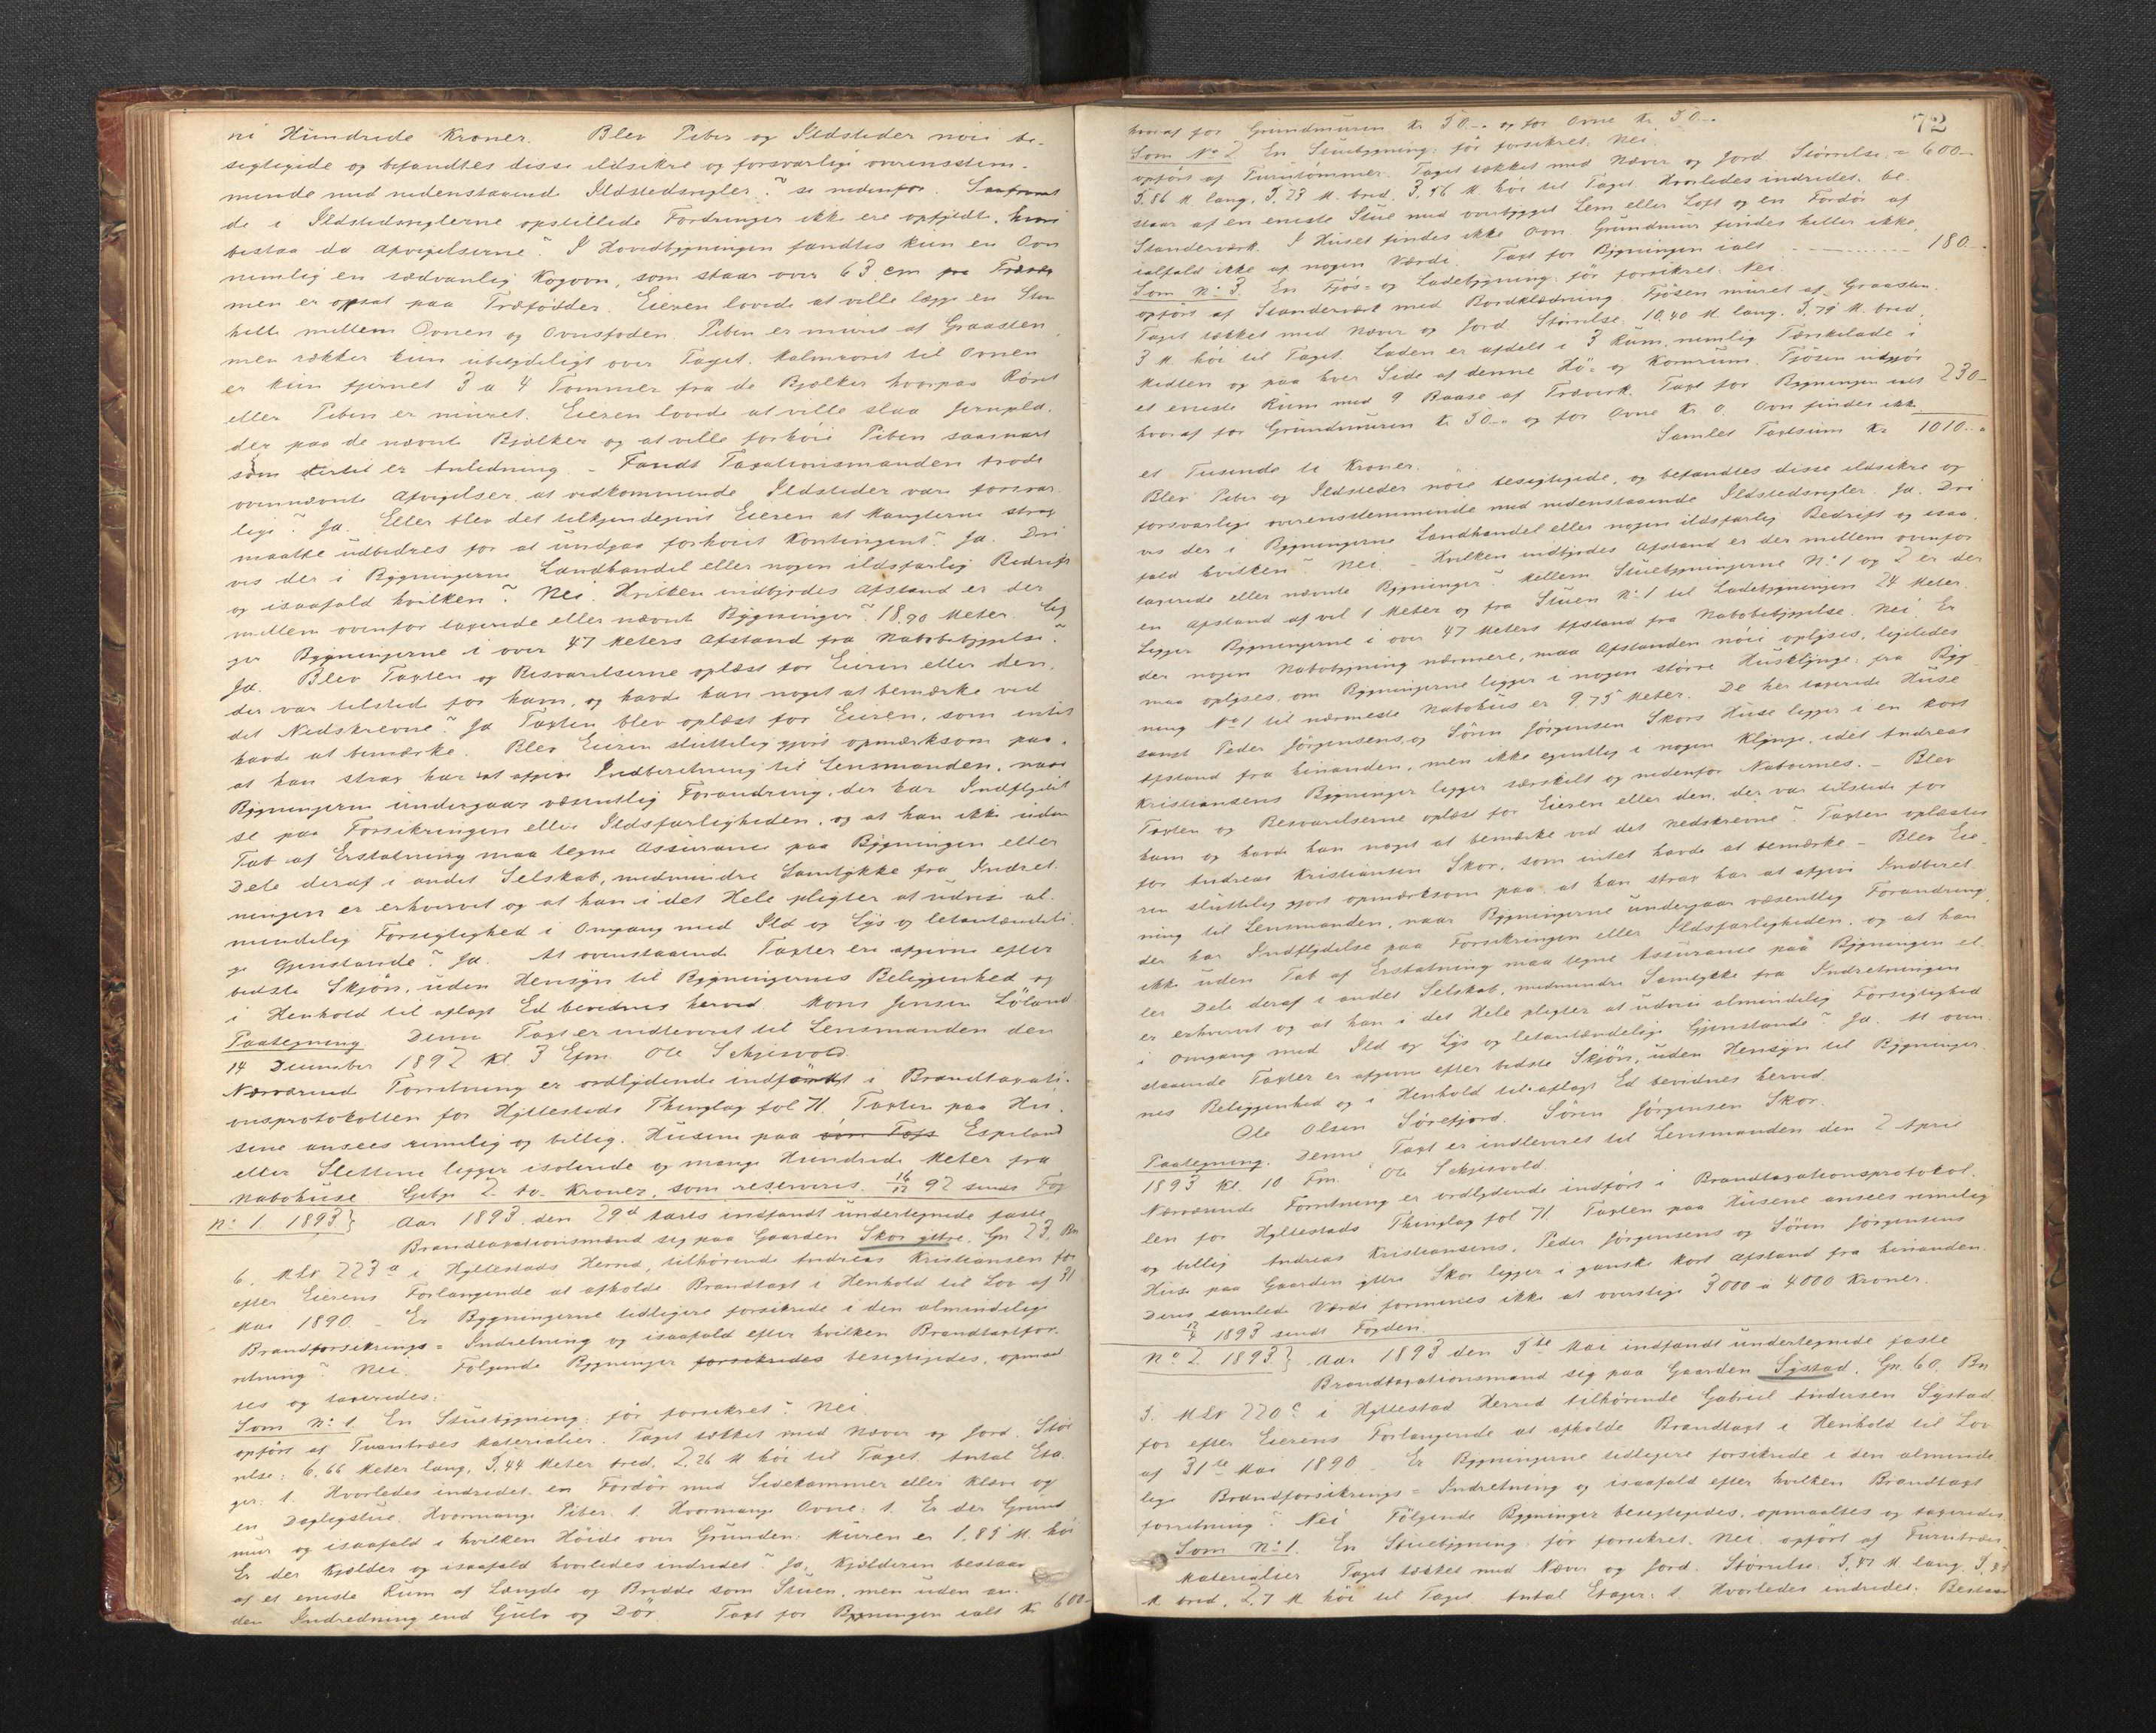 ni Hundrede Kroner. Blev Piber og Ildsteder nöie be-
sigtigede og befandtes disse ildsikre og forsvarlige overensstem-
mende med nedenstaaende Ildstedsregler? se nedenfor. Saafremt
de i Ildstedsreglerne opstillede Fordringer ikke ere opfyldte, hvori
bestaa da Afvigelserne? I Hovedbygningen fandtes kun en Ovn
nemlig en sædvanlig Kogovn, som staar over 63 cm fra Træværk
men er opsat paa Træfödder. Eieren lovede at ville lægge en Sten-
helle mellem Ovnen og Ovnsfoden. Piben er muret af Graasten
men rækker kun ubetydeligt over Taget. Kakkelröret til Ovnen
er kun fjernet 3 a 4 Tommer fra de Bjælker hvorpaa Röret
eller Piben er muret. Eieren lovede at ville slaa Jernpla-
der paa de nævnte Bjælker og at ville forhöie Piben saasnart
som dertil er Anledning. - Fandt Taxationsmanden trods
ovennævnte Afvigelser, at vedkommende Ildsteder vare forsvar-
lige? Ja. Eller blev det tilkjendegivet Eieren at Manglerne strax
maatte udbedres for at undgaa forhöiet Kontingent? Ja. Dri-
ves der i Bygningerne Landhandel eller nogen ildsfarlig Bedrift
og isaafald hvilken? Nei. Hvilken indbyrdes Afstand er der
mellem ovenfor taxerede eller nævnte Bygninger? 18.90 Meter. Lig-
ger Bygningerne i over 47 Meters Afstand fra Nabobebyggelse?
Ja. Blev Taxten og Besvarelserne oplæst for Eieren eller den,
der var tilstede for ham, og havde han noget at bemærke ved
det Nedskrevne? Ja Taxten blev oplæst for Eieren, som intet
havde at bemærke. Blev Eieren sluttelig gjort opmærksom paa,
at han strax har at afgive Indberetning til Lensmanden, naar
Bygningerne undergaar væsentlig Forandring, der har Indflydel-
se paa Forsikringen eller Ildsfarligheden, og at han ikke uden
Tab af Erstatning maa tegne Assurance paa Bygningen eller
Dele deraf i andet Selskab, medmindre Samtykke fra Indret-
ningen er erhvervet og at han i det Hele pligter at udvise al-
mindelig Forsigtighed i Omgang med Ild og Lys og letantændeli-
ge Gjenstande? Ja. At ovenstaaende Taxter ere afgivne efter
bedste Skjön, uden Hensyn til Bygningernes Beliggenhed og
i Henhold til aflagt Ed bevidnes herved. Mons Jensen Løland
Paategning Denne Taxt er indleveret til Lensmanden den
14 December 1892 Kl. 3 Efm. Ole Schjesvold.
Nærværende Forretning er ordlydende indført i Brandtaxati-
onsprotokollen for Hyllestads Thinglag fol 71. Taxten paa Hu-
sene ansees rimelig og billig. Husene paa Espeland
eller Slettene ligger isolerede og mange Hundrede Meter fra
Nabohuse Gebyr 2 - to - Kroner, som reserveres. 16/12 92 sendt Fog
No 1. 1893} Aar 1893, den 29de Marts indfandt undertegnede faste
Brandtaxationsmænd sig paa Gaarden Skor ytre, Gn 23, Bn
6, MLr 223a i Hyllestads Herred, tilhørende Andreas Kristiansen for
efter Eierens Forlangende at afholde Brandtaxt i Henhold til Lov af 31
Mai 1890. - Er Bygningerne tidligere forsikrede i den almindelige
Brandforsikrings-Indretning og isaafald efter hvilken Brandtaxtfor-
retning? Nei. Følgende Bygninger forsikredes besigtigedes, opmaal-
tes og taxeredes:
Som No 1. En Stuebygning: før forsikret? Nei.
opført af Materialier. Taget tækket med Næver og Jord. Stör-
relse: 6,66 Meter lang, 5,44 Meter bred, 2,26 M höi til Taget. Antal Eta-
ger: 1. Hvorledes indredet: en Fordör med Sidekammer eller Kleve og
en Dagligstue. Hvormange Piber: 1. Hvormange Ovne: 1. Er der Grund-
mur og isaafald i hvilken Höide over Grunden: Muren er 1,85 M. höi
Er der Kjælder og isaafald hvorledes indredet? Ja, Kjælderen bestaar
af et eneste Rum af Længde og Bredde som Stuen, men uden an-
den Indredning end Gulv og Dör. Taxt for Bygningen ialt Kr 600-
72
hvoraf for Grundmuren Kr 50.- og for Ovne Kr 50.-
Som No 2 En Stuebygning: før forsikret. Nei.
opført af Furutömmer. Taget tækket med Næver og Jord. Störrelse = 600-
5,86 M. lang, 5,23 M. bred, 3,56 M. höi til Taget. Hvorledes indredet: be-
staar af en eneste Stue med overbygget Lem eller Loft og en Fordör af
Standerværk. I Huset findes ikke Ovn. Grundmur findes heller ikke,
ialfald ikke af nogen Værdi. Taxt for Bygningen ialt 180.-
Som No 3. En Fjös- og Ladebygning: før forsikret. Nei
opført af Standerværk med Bordklædning. Fjösen muret af Graasten.
Taget tækket med Næver og Jord Störrelse. 10,40 M. lang, 5,79 M. bred,
3 M. höi til Taget. Laden er afdelt i 3 Rum, nemlig Tærskelade i
Midten og paa hver Side af denne Hö- og Kornrum. Fjösen udgjör
et eneste Rum med 9 Baase af Træværk. Taxt for Bygningen ialt 230-
hvoraf for Grundmuren Kr 50.- og for Ovne Kr 0. Ovn findes ikke
Samlet Taxtsum Kr 1010.-
et Tusinde ti Kroner.
Blev Piber og Ildsteder nöie besigtigede, og befandtes disse ildsikre og
forsvarlige overensstemmende med nedenstaaende Ildstedsregler. Ja. Dri-
ves der i Bygningerne Landhandel eller nogen ildsfarlig Bedrift og isaa-
fald hvilken? Nei - Hvilken indbyrdes Afstand er der mellem ovenfor
taxerede eller nævnte Bygninger? Mellem Stuebygningerne No 1 og 2 er der
en Afstand af vel 1 Meter og fra Stuen No 1 til Ladebygningen 24 Meter.
Ligger Bygningerne i over 47 Meters Afstand fra Nabobebyggelse. Nei. Er
der nogen Nabobygning nærmere, maa Afstanden nöie oplyses, ligeledes
maa oplyses, om Bygningerne ligger i nogen större Husklynge: fra Byg-
ning No 1 til nærmeste Nabohus er 9,75 Meter. De her taxerede Huse
samt Peder Jörgensens og Sören Jörgensen Skors Huse ligger i en kort
Afstand fra hinanden, men ikke egentlig i nogen Klynge, idet Andreas
Kristiansens Bygninger ligger særskilt og nedenfor Naboernes. - Blev
Taxten og Besvarelserne oplæst for Eieren eller den, der var tilstede for
ham og havde han noget at bemærke ved det nedskrevne? Taxten oplæstes
for Andreas Kristiansen Skor, som intet havde at bemærke - Blev Eie-
ren sluttelig gjort opmærksom paa, at han strax har at afgive Indberet-
ning til Lensmanden, naar Bygningerne undergaar væsentlig Forandring,
der har Indflydelse paa Forsikringen eller Ildsfarligheden, og at han
ikke uden Tab af Erstatning maa tegne Assurance paa Bygningen el-
ler Dele deraf i andet Selskab, medmindre Samtykke fra Indretningen
er erhvervet og at han i det Hele pligter at udvise almindelig Forsigtighed
i Omgang med Ild og Lys og letantændelige Gjenstande? Ja. At oven-
staaende Taxter er afgivne efter bedste Skjön, uden Hensyn til Bygninger-
nes Beliggenhed og i Henhold til aflagt Ed bevidnes herved.
Ole Olsen Sörefjord. Sören Jörgensen Skor.
Paategning. Denne Taxt er indleveret til Lensmanden den 2 April
1893 Kl. 10 Fm. Ole Schjesvold.
Nærværende Forretning er ordlydende indført i Brandtaxationsprotokol-
len for Hyllestads Thinglag fol 71. Taxten paa Husene ansees rimelig
og billig Andreas Kristiansens, Peder Jörgensens og Sören Jörgensens
Huse paa Gaarden ytre Skor ligger i ganske kort Afstand fra hinanden.
Deres samlede Værdi formenes ikke at overstige 3000 a 4000 Kroner.
12/4 1893 sendt Fogden.
No 2. 1893.} Aar 1893 den 5te Mai indfandt undertegnede faste
Brandtaxationsmænd sig paa Gaarden Systad, Gn. 60, Bn
3. MLr 220c i Hyllestad Herred tilhørende Gabriel Andersen Systad
for efter Eierens Forlangende at afholde Brandtaxt i Henhold til Lov
af 31te Mai 1890 - Er Bygningerne tidligere forsikrede i den alminde-
lige Brandforsikrings-Indretning og isaafald efter hvilken Brandtaxt-
forretning? Nei Følgende Bygninger besigtigedes, opmaaltes og taxeredes
Som No 1. En Stuebygning: før forsikret. Nei. opført af Furutræes
Materialier Taget tækket med Næver og Jord. Störrelse: M. lang,
M bred, 2,7 M höi til Taget. Antal Etager: 1. Hvorledes indredet: Bestaar